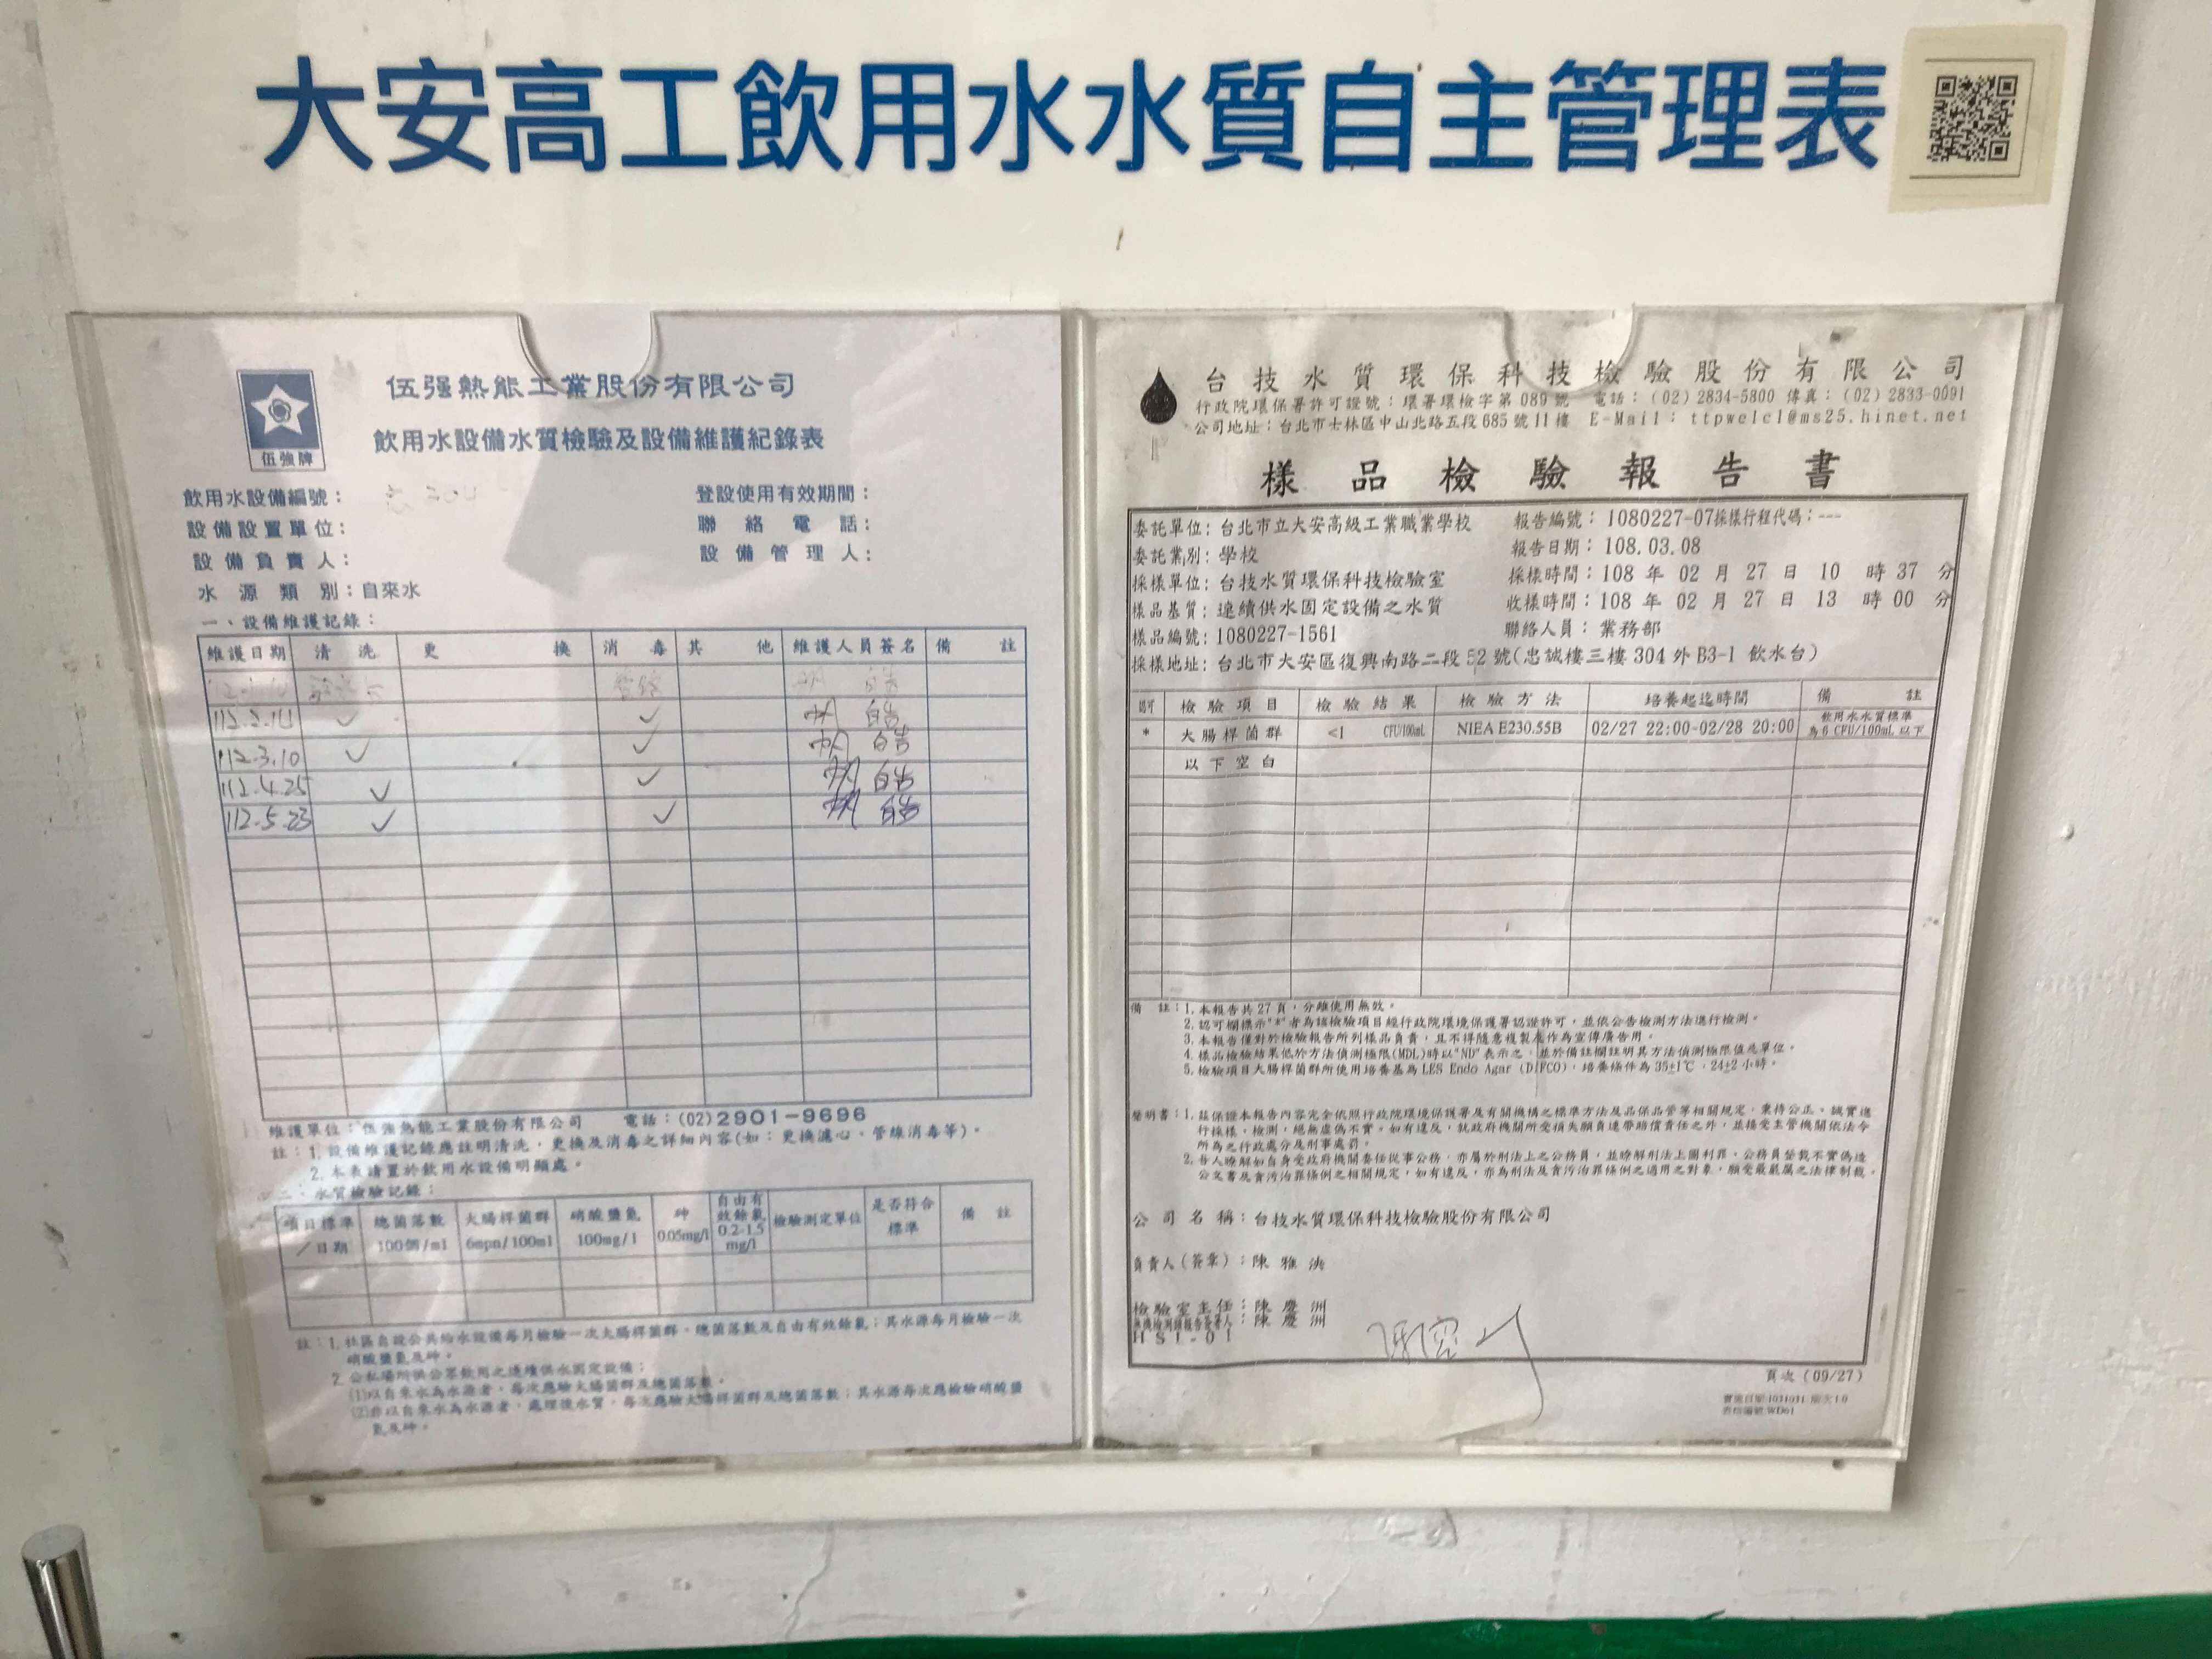 大安高工飲用水水質自主管理表
伍强熱能工業股份有限公司
飲用水設備水質檢驗及設備維護紀錄表
伍強牌
飲用水設備編號：
登設使用有效期間：
設備設置單位：
聯絡電話：
設備負責人：
設備管理人：
水源類別：自來水
一、設備維護記錄：
維護日期 清洗 更換 消毒 其他 維護人員簽名 備註
112.3.10 ✓ ✓
112.4.25 ✓ ✓
112.5.23 ✓ ✓
維護單位：伍強熱能工業股份有限公司 電話：(02)2901-9696
註：1. 設備維護記錄應註明清洗，更換及消毒之詳細內容(如：更換濾心、管線消毒等)。
2. 本表請置於飲用水設備明顯處。
二、水質檢驗記錄：
項目標準／日期 總菌落數 100個/ml 大腸桿菌群 6mpn/100ml 硝酸鹽氮 100mg/l 砷 0.05mg/l 自由有效餘氯 0.2-1.5 mg/l 檢驗測定單位 是否符合標準 備註
註：1. 社區自設公共給水設備每月檢驗一次大腸桿菌群、總菌落數及自由有效餘氯；其水源每月檢驗一次
硝酸鹽氮及砷。
2. 公私場所供公眾飲用之連續供水固定設備：
(1)以自來水為水源者，每次應驗大腸桿菌群及總菌落數。
(2)非以自來水為水源者，處理後水質，每次應驗大腸桿菌群及總菌落數；其水源每次應檢驗硝酸鹽
氮及砷。
台技水質環保科技檢驗股份有限公司
行政院環保署許可證號：環署環檢字第089號 電話：(02)2834-5800 傳真：(02)2833-0091
公司地址：台北市士林區中山北路五段685號11樓 E-Mail：ttpwelcl@ms25.hinet.net
樣品檢驗報告書
委託單位：台北市立大安高級工業職業學校 報告編號：1080227-07採樣行程代碼：---
委託業別：學校 報告日期：108.03.08
採樣單位：台技水質環保科技檢驗室 採樣時間：108 年 02 月 27 日 10 時 37 分
樣品基質：連續供水固定設備之水質 收樣時間：108 年 02 月 27 日 13 時 00 分
樣品編號：1080227-1561 聯絡人員：業務部
採樣地址：台北市大安區復興南路二段52號(忠誠樓三樓304外B3-1飲水台)
認可 檢驗項目 檢驗結果 檢驗方法 培養起迄時間 備註
* 大腸桿菌群 <1 CFU/100mL NIEA E230.55B 02/27 22:00-02/28 20:00 飲用水水質標準為6 CFU/100mL以下
以下空白
備註：1. 本報告共27頁，分離使用無效。
2. 認可欄標示"*"者為該檢驗項目經行政院環境保護署認證許可，並依公告檢測方法進行檢測。
3. 本報告僅對於檢驗報告所列樣品負責，且不得隨意複製及作為宣傳廣告用。
4. 樣品檢驗結果低於方法偵測極限(MDL)時以"ND"表示之，並於備註欄註明其方法偵測極限值及單位。
5. 檢驗項目大腸桿菌群所使用培養基為LES Endo Agar (DIFCO)，培養條件為35±1℃，24±2小時。
聲明書：1. 茲保證本報告內容完全依照行政院環境保護署及有關機構之標準方法及品保品管等相關規定，秉持公正、誠實進
行採樣、檢測，絕無虛偽不實。如有違反，就政府機關所受損失願負連帶賠償責任之外，並接受主管機關依法令
所為之行政處分及刑事處罰。
2. 吾人瞭解如自身受政府機關委任從事公務，亦屬於刑法上之公務員，並瞭解刑法上圖利罪、公務員登載不實偽造
公文書及貪污治罪條例之相關規定，如有違反，亦為刑法及貪污治罪條例之適用之對象，願受最嚴厲之法律制裁。
公司名稱：台技水質環保科技檢驗股份有限公司
負責人(簽章)：陳雅洪
檢驗室主任：陳慶洲
陳慶洲
HSI-01
頁次(09/27)